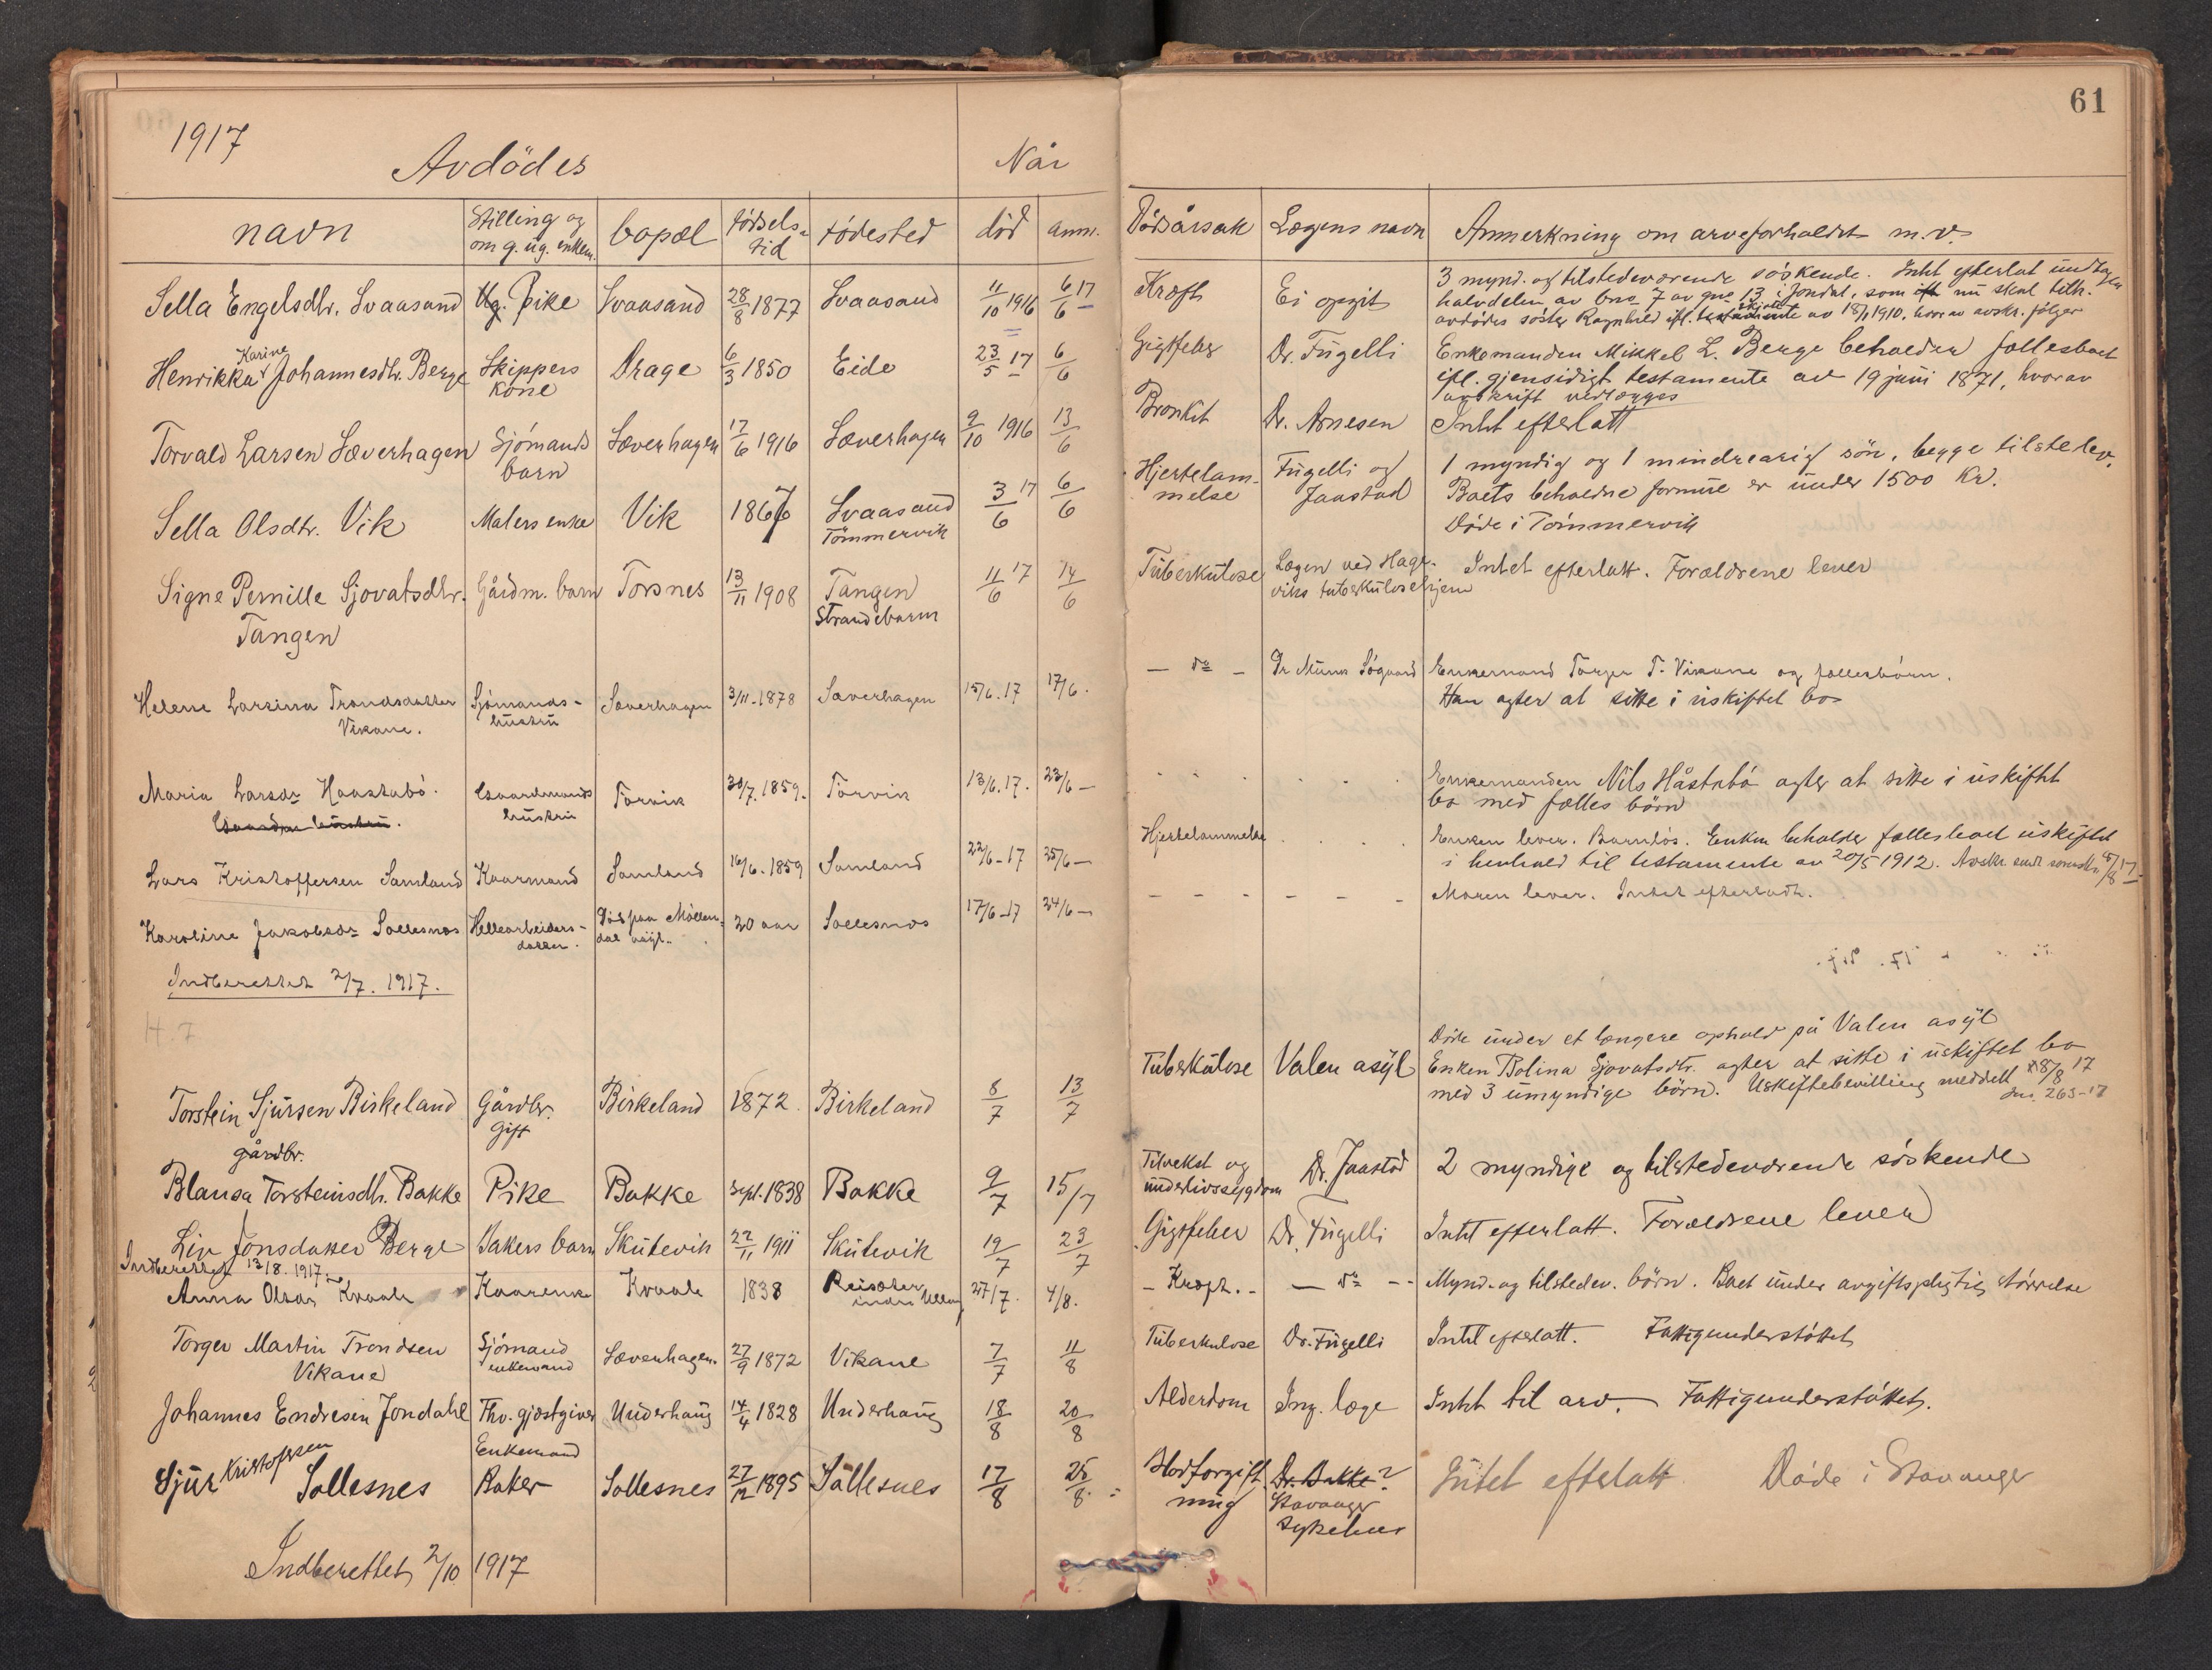 61
1917
Avdödes
Når
navn Stilling og om g. ug. enkem. bopæl födsels- tid födested död anm. Dödsårsak Lægens navn Anmerkning om arveforholdet m.v.
Sella Engelsdtr. Svaasand Ug. pike Svaasand 28/8 1877 Svaasand 11/10 1916 6/6 17 Kræft Ei opgit
3 mynd. og tilstedeværende söskende. Intet efterlat undtagen
halvdelen av bno 7 av gno 13 i Jondal, som nu skal tilh.
avdödes söster Ragnhild ifl. skjöte av 18/1 1910, hvorav avskr. fölger
Henrikka Karine Johannesdtr. Berge Skippers kone Drage 6/3 1850 Eide 23/5 17 6/6 Gigtfeber Dr. Fugelli
Enkemanden Mikkel L. Berge beholder fællesboet
ifl. gjensidigt testamente av 19 juni 1871, hvorav
avskrift vedlægges
Torvald Larsen Sæverhagen Sjömands barn Sæverhagen 17/6 1916 Sæverhagen 9/10 1916 13/6 Bronkit Dr. Arnesen Intet efterlatt
Sella Olsdtr. Vik Malers enke Vik 1867 Svaasand Tömmervik 3/6 17 6/6 Hjertelam- melse Fugelli og Jaastad
1 myndig og 1 mindreårig sön, begge tilstedev.
Boets beholdne formue er under 1500 Kr.
Döde i Tömmervik
Signe Pernille Sjovatsdtr. Tangen Gårdm. barn Torsnes 13/11 1908 Tangen Strandebarm 11/6 17 14/6 Tuberkulose Lægen ved Hage- viks tuberkulosehjem Intet efterlatt. Forældrene lever
Helene Larsina Trondsdatter Vikane. Sjömands- hustru Sæverhagen 3/11-1878 Sæverhagen 15/6.17 17/6. — do — Dr Munk Sögaard Enkemand Torger T. Vikane og fællesbörn.
Han agter at sitte i uskiftet bo
Maria Larsdr Haastabö. Gaardmands hustru Torvik 30/7.1859. Torvik 13/6.17. 23/6 —
Gaardm hustru.
Enkemanden Nils Håstabö agter at sitte i uskiftet
bo med fælles börn
Lars Kristoffersen Samland Kaarmand Samland 16/6.1859 Samland 22/6-17 25/6 — Hjertelammelse
Enken lever. Barnlös. Enken beholder fællesboet uskiftet
i henhold til testamente av 20/5 1912.
Karoline Jakobsdr Sollesnes Hellearbeiders- datter. Död paa Möllen- dal asyl. 20 aar Sollesnes 17/6-17 24/6 — Moren lever. Intet efterladt.
Indberettet 2/7. 1917.
H.7
Torstein Sjursen Birkeland gårdbr. Gårdbr. Gift Birkeland 1872. Birkeland 8/7 13/7 Tuberkulose Valen asyl
Döde under et længere ophold på Valen asyl
Enken Bolina Sjovatsdtr. agter at sitte i uskiftet bo
med 3 umyndige börn. Uskiftebevilling meddelt 18/8 17
Jnr. 263-17
Blansa Torsteinsdtr. Bakke Pike Bakke Sept. 1838 Bakke 9/7 15/7 Tilvekst og underlivssygdom Dr. Jaastad 2 myndige og tilstedeværende söskende
Liv Jonsdatter Berge Bakers barn Skutevik 22/11 1911 Skutevik 19/7 23/7 Gigtfeber Dr. Fugelli Intet efterlatt. Forældrene lever
Indberettet 13/8. 1917.
Anna Olsdr Kvaale Kaarenke Kvaale 1838 Reisæter indre Ullen 27/7. 4/8. — Kræft. — — do — — Mynd. og tilstedev. börn. Boet under avgiftspligtig störrelse
Torger Martin Trondsen Vikane Sjömand enkemand Sæverhagen. 27/9 1872 Vikane 7/7 11/8 Tuberkulose Dr. Fugelli Intet efterlatt. Fattigunderstöttet
Johannes Endresen Jondahl Fhv. gjæstgiver Enkemand Underhaug 14/4 1828 Underhaug 18/8 20/8 Alderdom Ing. læge Intet til arv. — Fattigunderstöttet.
Sjur Kristofersen Sollesnes Baker Sollesnes 27/12 1895 Sollesnes 17/8 25/8 Blodforgift- ning Dr. Bakke? Stavanger sykehus Intet efterlatt Döde i Stavanger
Indberettet 2/10 1917